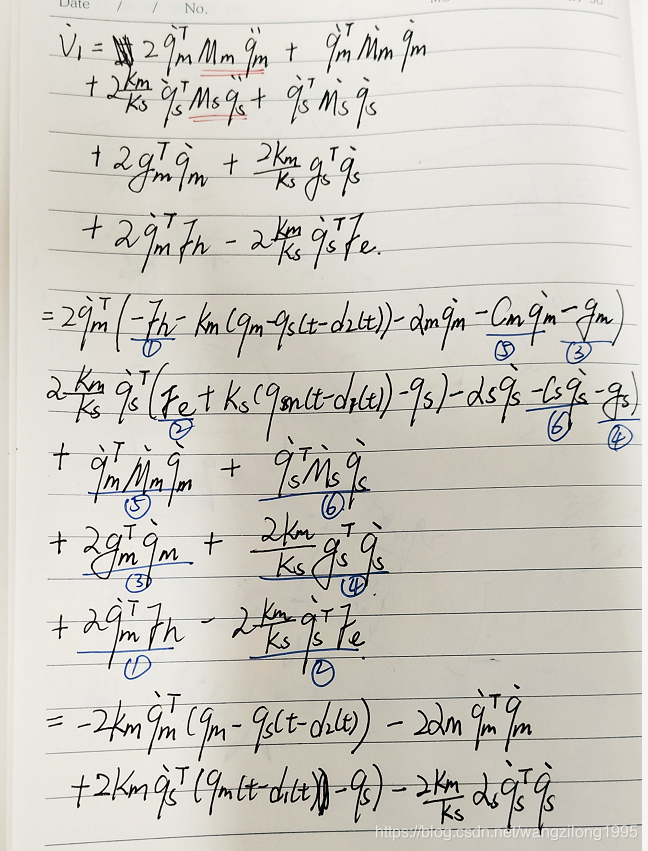 Date / / No.
V̇₁ = 2 q̇ₘᵀ Mₘ q̈ₘ + q̇ₘᵀ Ṁₘ q̇ₘ
+ 2 kₘ/kₛ q̇ₛᵀ Mₛ q̈ₛ + q̇ₛᵀ Ṁₛ q̇ₛ
+ 2 gₘᵀ q̇ₘ + 2kₘ/kₛ gₛᵀ q̇ₛ
+ 2 q̇ₘᵀ Fh - 2 kₘ/kₛ q̇ₛᵀ Fe.
= 2 q̇ₘᵀ (-Fh - kₘ(qₘ - qₛ(t-d₂(t)) - αₘ q̇ₘ - Cₘ q̇ₘ - gₘ)
① ⑤ ③
2 kₘ/kₛ q̇ₛᵀ (Fe + kₛ(qₘ(t-d₁(t)) - qₛ) - αₛ q̇ₛ - Cₛ q̇ₛ - gₛ)
② ⑥ ④
+ q̇ₘᵀ Ṁₘ q̇ₘ + q̇ₛᵀ Ṁₛ q̇ₛ
⑤ ⑥
+ 2gₘᵀ q̇ₘ + 2kₘ/kₛ gₛᵀ q̇ₛ
③ ④
+ 2 q̇ₘᵀ Fh - 2 kₘ/kₛ q̇ₛᵀ Fe.
① ②
= -2kₘ q̇ₘᵀ (qₘ - qₛ(t-d₂(t)) - 2αₘ q̇ₘᵀ q̇ₘ
+ 2kₘ q̇ₛᵀ (qₘ(t-d₁(t)) - qₛ) - 2kₘ/kₛ αₛ q̇ₛᵀ q̇ₛ
https://blog.csdn.net/wangzilong1995